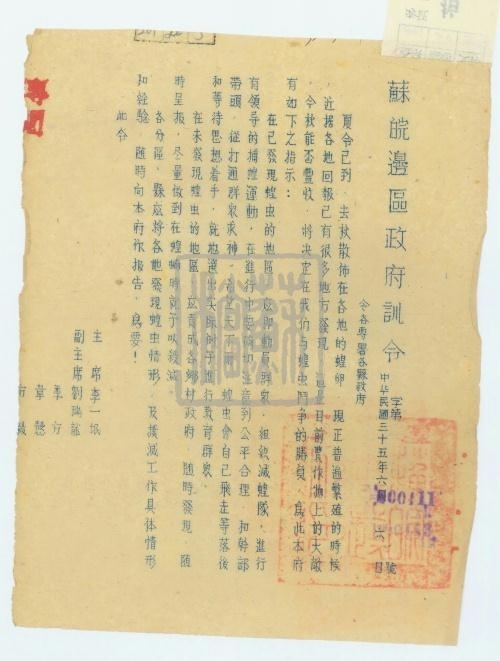 蘇皖邊區政府訓令
字第 號
中华民國三十五年六月 日
令各專署各縣政府
夏令已到，去秋散佈在各地的蝗卵，現正普遍繁殖的時候
，近据各地回報已有很多地方發現 目前農作物上的大敵
今秋能否豐收，將决定在我们与蝗虫鬥争的勝負，爲此本府
有如下之指示：
在已發現蝗虫的地區，应即動員群衆，組織滅蝗隊，進行
有領导的捕蝗運動，在進行中 注意到公平合理，和幹部
帶頭，從打通群衆求神， 蝗虫會自己飛走等落後
和等待思想着手， 進行教育群衆。
在未發現蝗虫的地區， 各鄉村政府，随時發現，随
時呈报，尽量做到在蝗蝻時
各分區，縣 將各地發現蝗虫情形，及撲滅工作具体情形
和经驗，随時向本府作报告，爲要！
此令
主席李一氓
副主席劉瑞龍
季方
韋慤